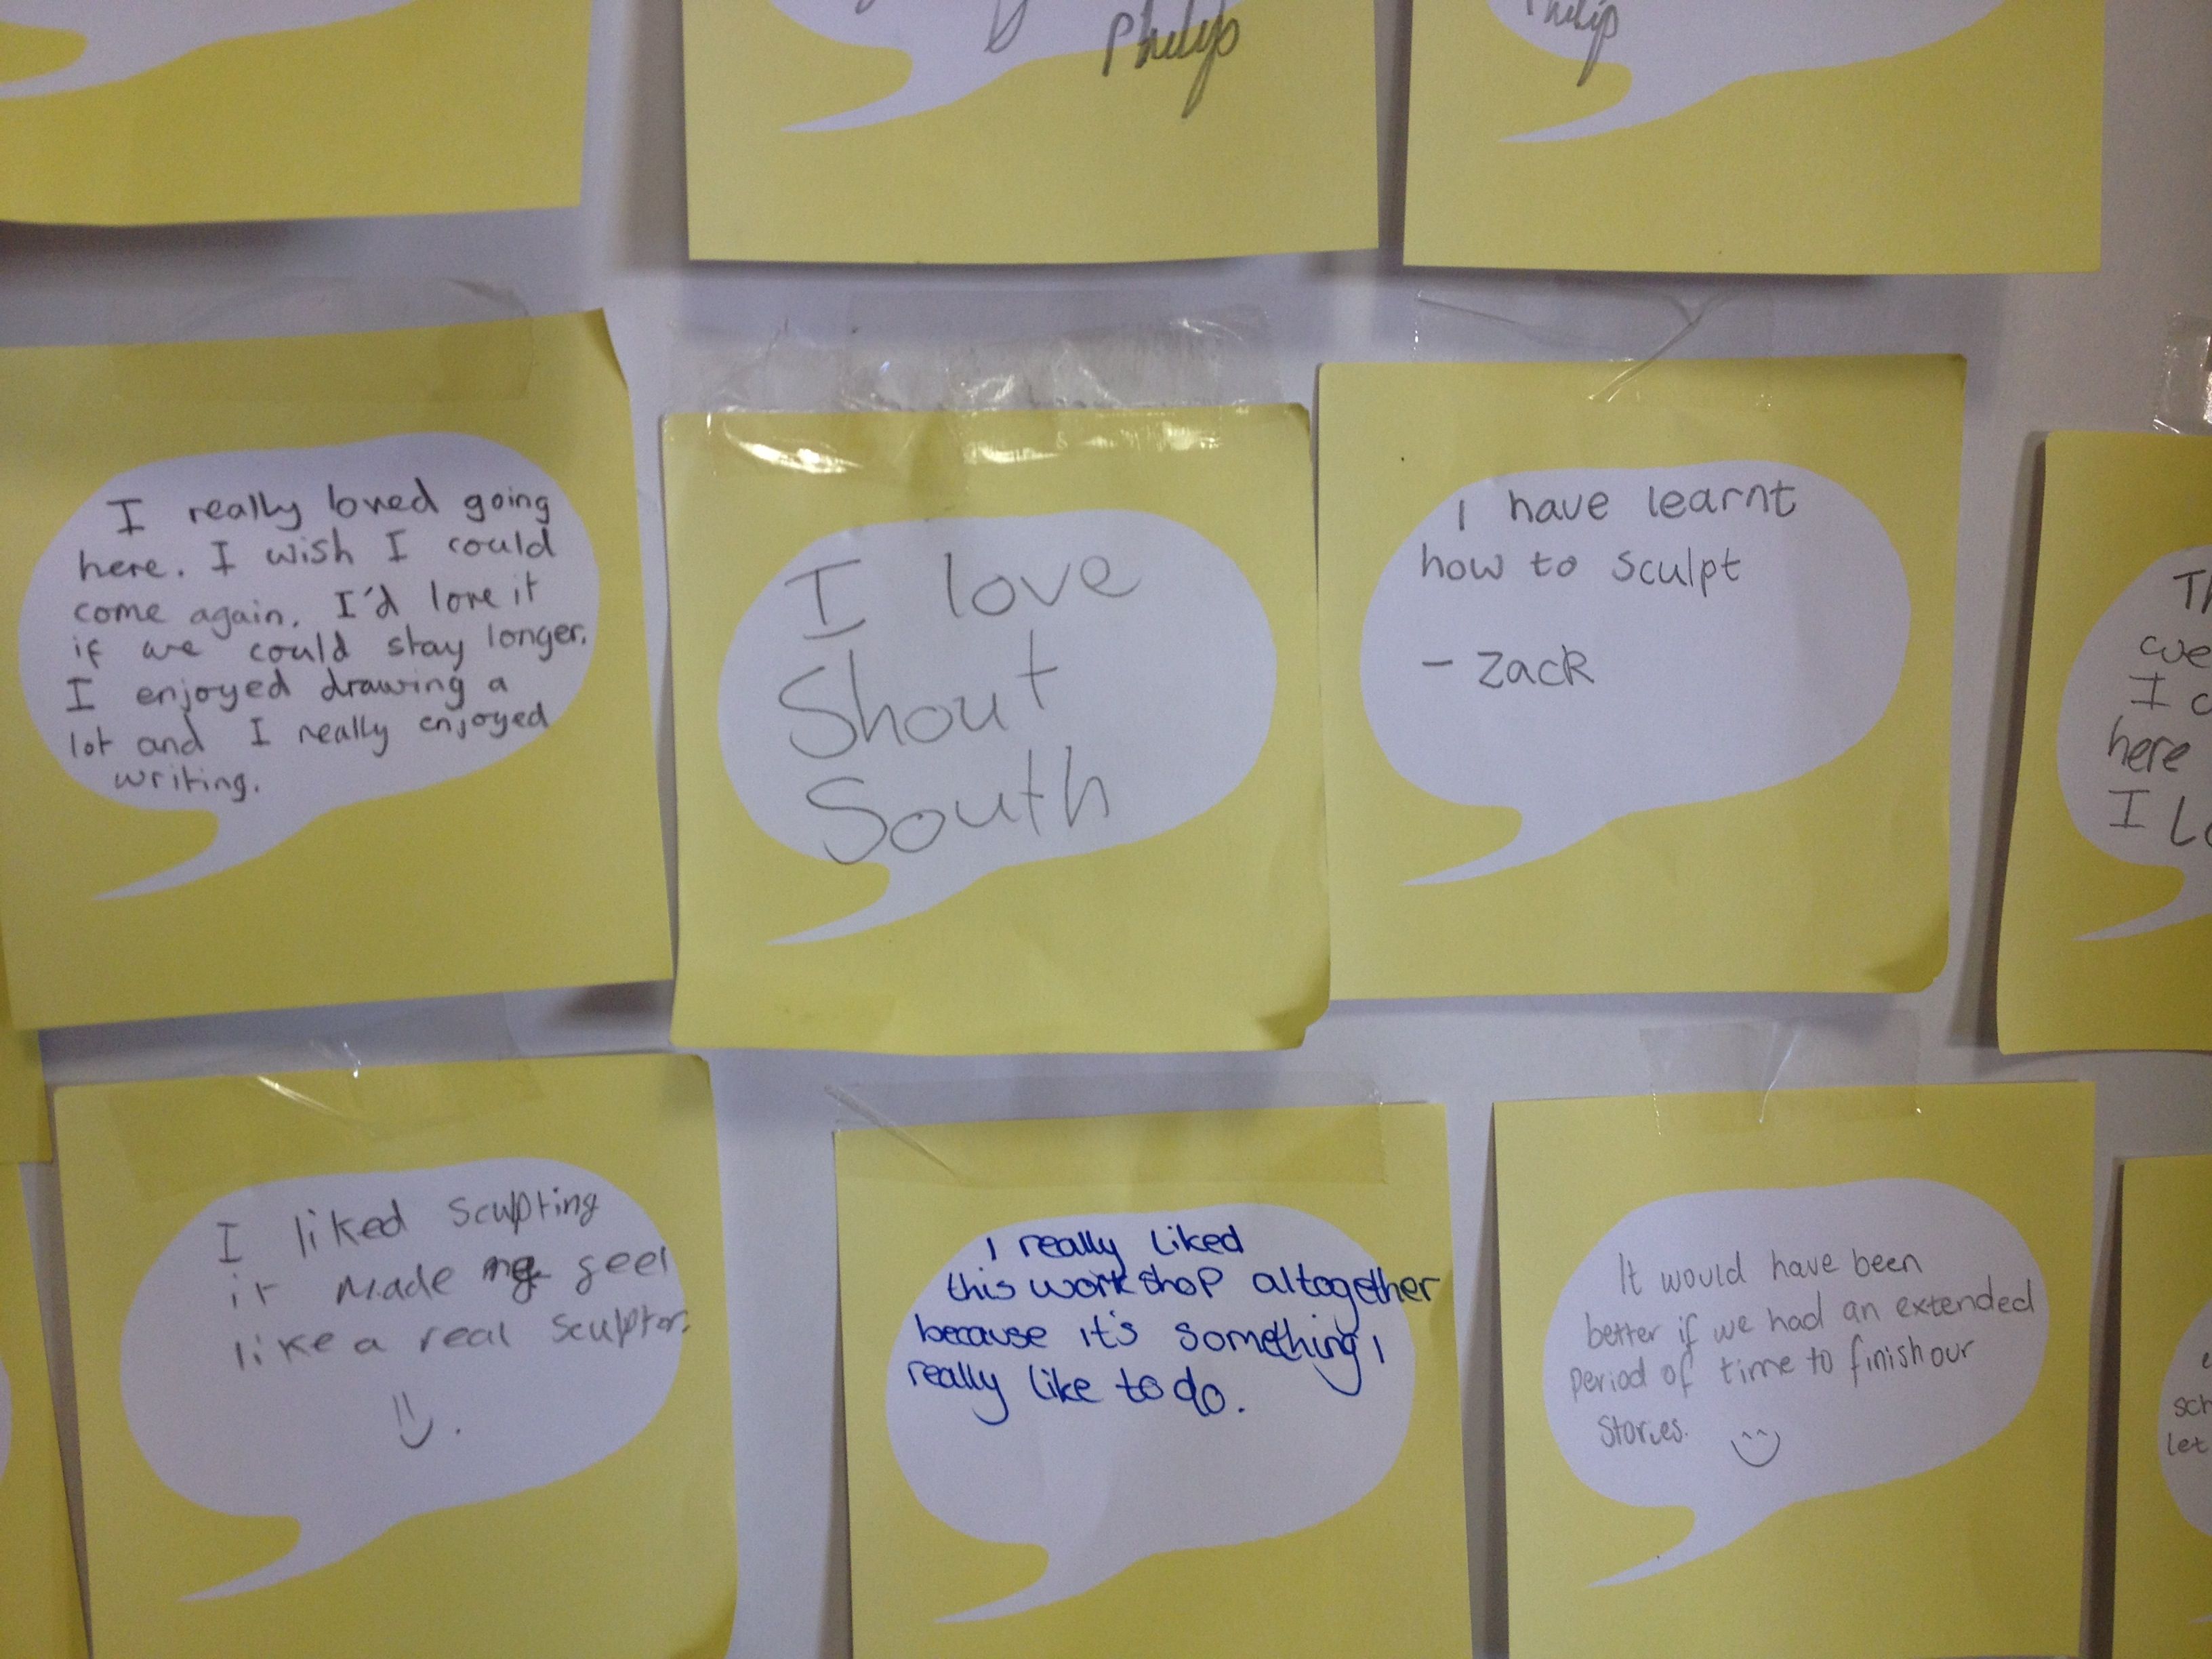 Philip
Philip
I really loved going
here. I wish I could
come again. I'd love it
if we could stay longer.
I enjoyed drawing a
lot and I really enjoyed
writing.
I love
Shout
South
I have learnt
how to sculpt
- Zack
we
I
here
I
I liked sculpting
it made me feel
like a real sculptor.
I really liked
this workshop altogether
because it's something I
really like to do.
It would have been
better if we had an extended
period of time to finish our
stories.
let